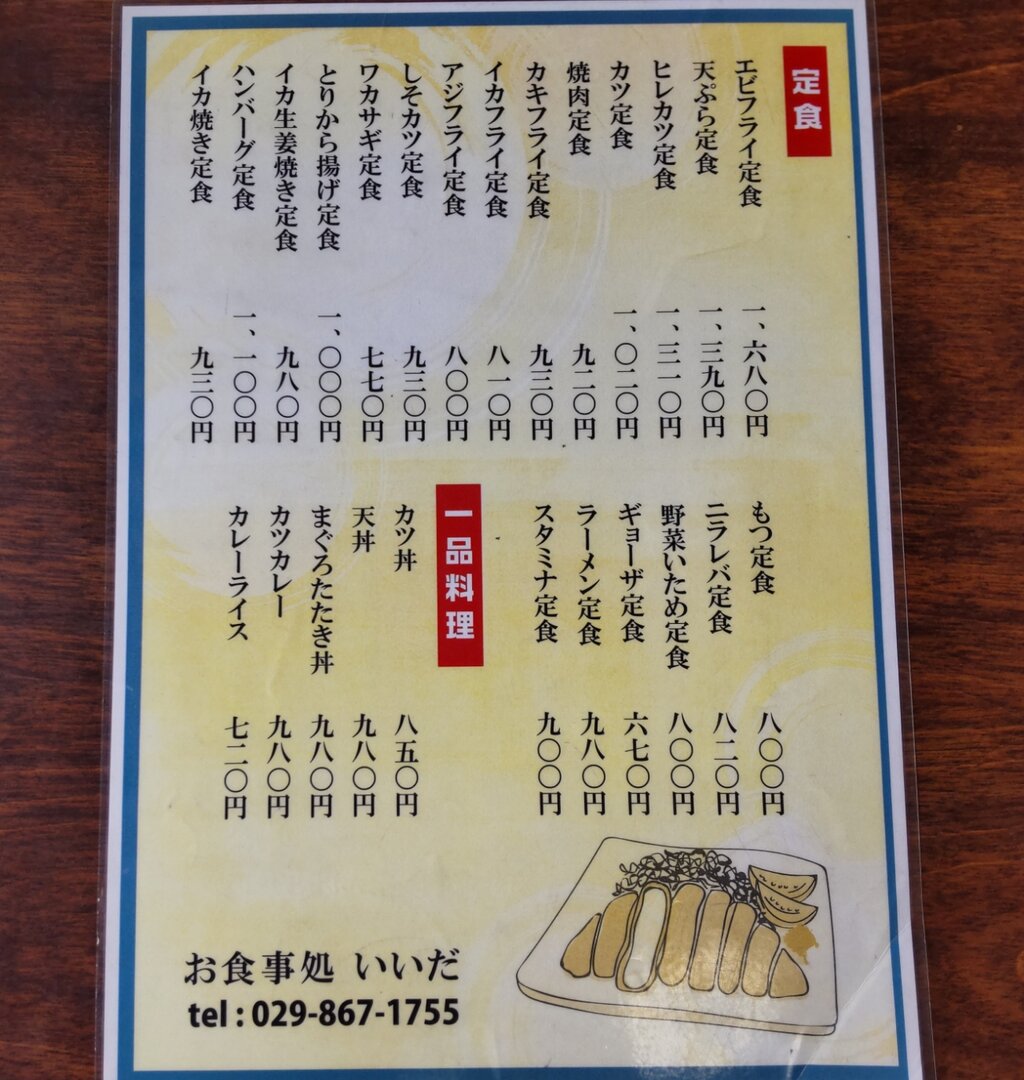 定食
エビフライ定食 一、六八〇円
天ぷら定食 一、三九〇円
ヒレカツ定食 一、三一〇円
カツ定食 一、〇二〇円
焼肉定食 九二〇円
カキフライ定食 九三〇円
イカフライ定食 八一〇円
アジフライ定食 八〇〇円
しそカツ定食 九三〇円
ワカサギ定食 七七〇円
とりから揚げ定食 一、〇〇〇円
イカ生姜焼き定食 九八〇円
ハンバーグ定食 一、一〇〇円
イカ焼き定食 九三〇円
もつ定食 八〇〇円
ニラレバ定食 八二〇円
野菜いため定食 八〇〇円
ギョーザ定食 六七〇円
ラーメン定食 九八〇円
スタミナ定食 九〇〇円
一品料理
カツ丼 八五〇円
天丼 九八〇円
まぐろたたき丼 九八〇円
カツカレー 九八〇円
カレーライス 七二〇円
お食事処 いいだ
tel : 029-867-1755